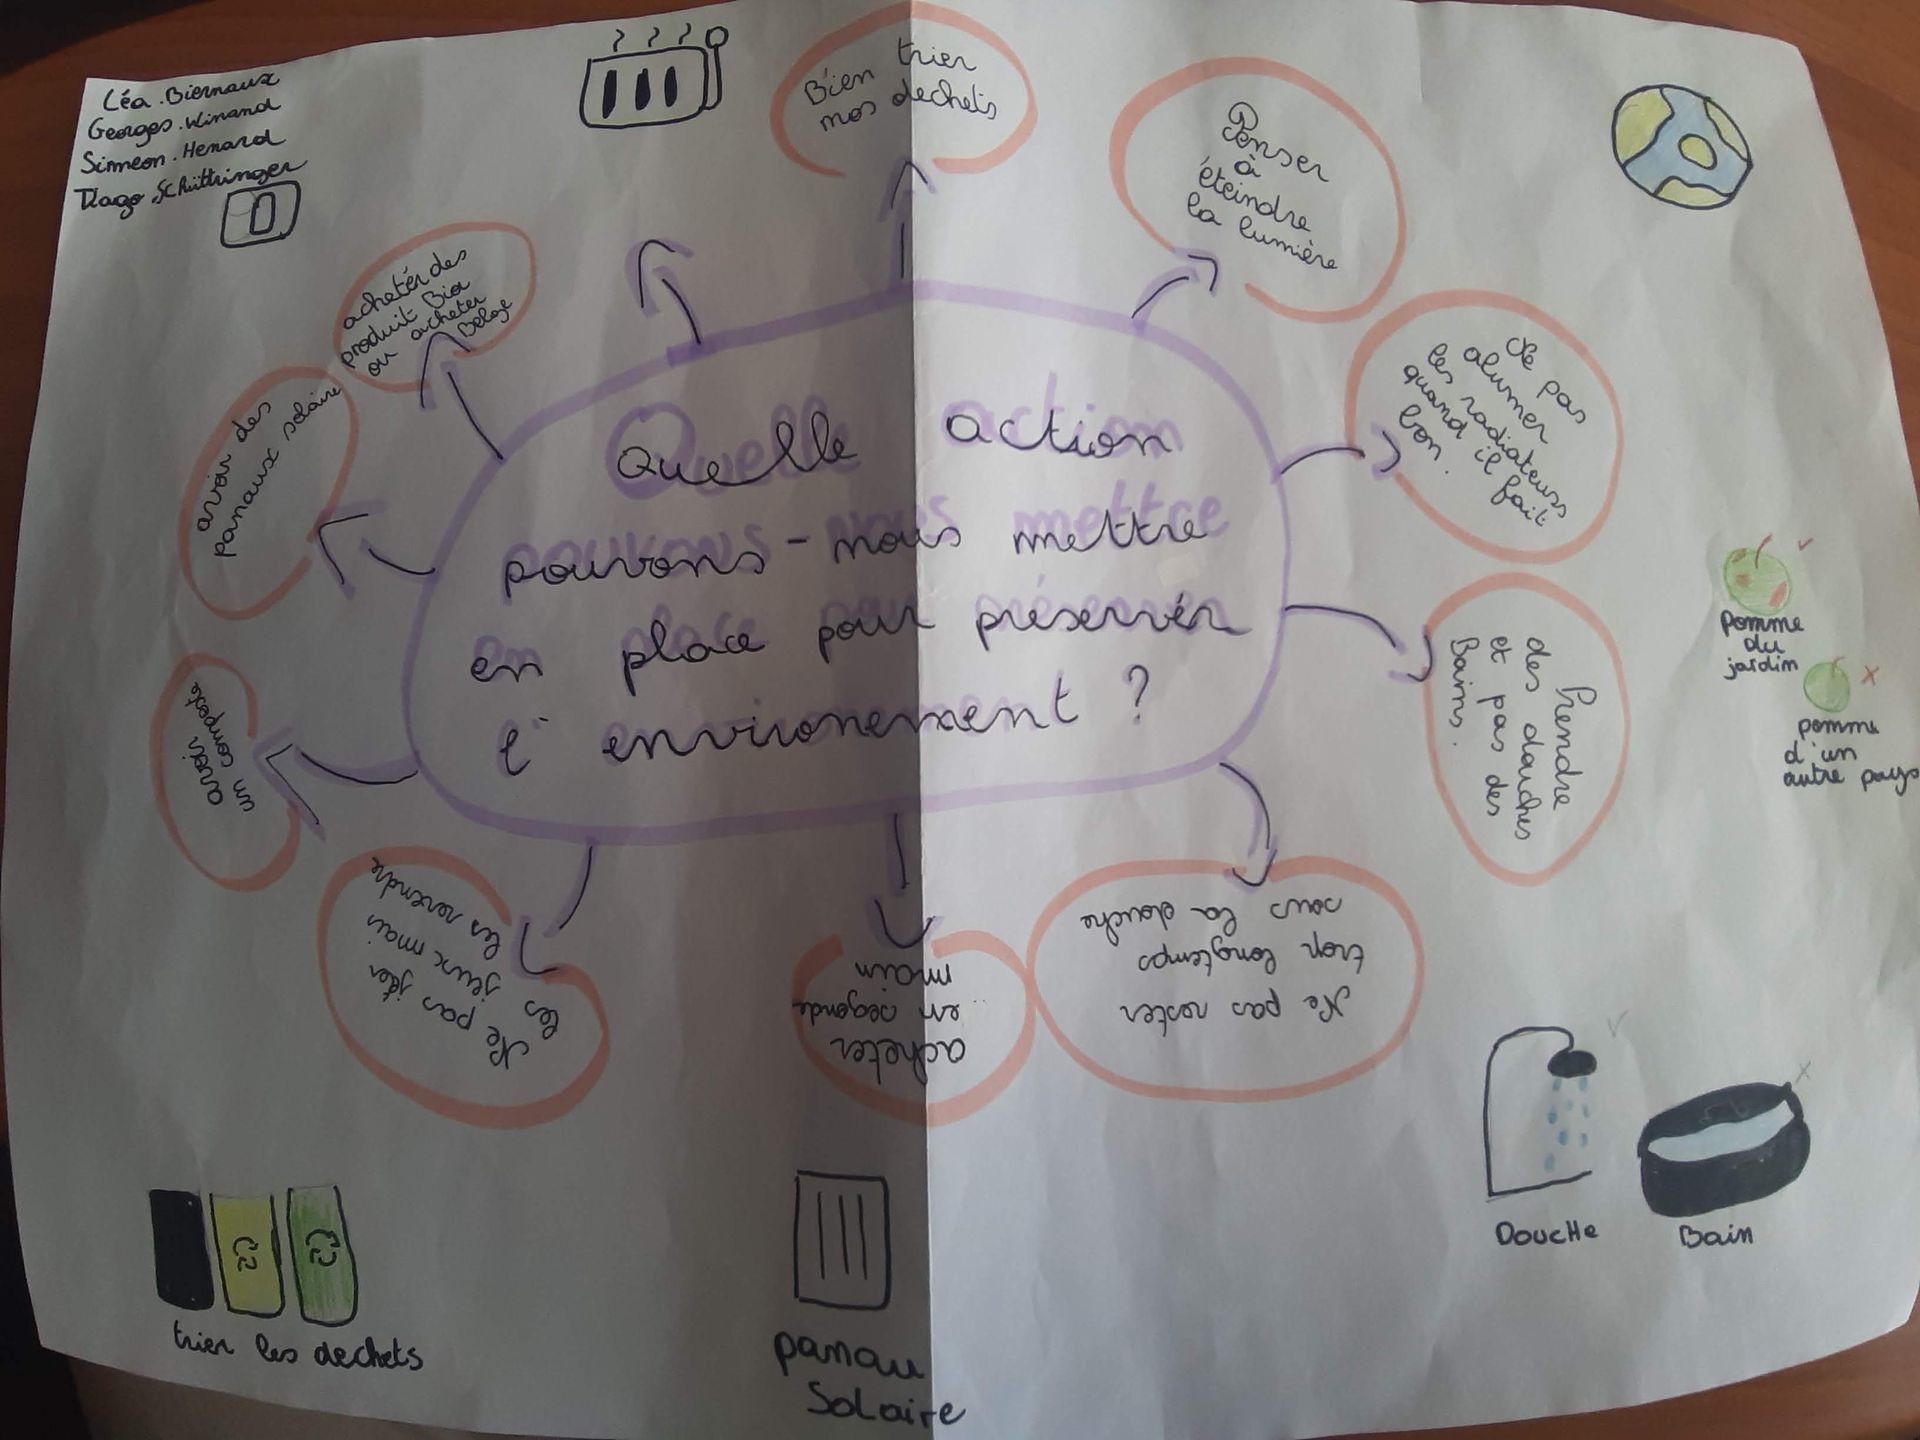 Léa.Biernaux
Georges.Winand
Siméon.Henard
Tiago.Schüttringer
Bien trier
mos dechets
Penser
à
éteindre
la lumière
Ne pas
alumer
les radiateurs
quand il fait
bon.
Prendre
des douches
et pas des
Bains.
Ne pas rester
trop longtemps
sous la douche
acheter
en segonde
main
Ne pas jeter
les jeux mais
les revendre
avoir
un composte
avoir des
panaux solaire
achetér des
produit Bio
ou acheter
Belge
Quelle action
pouvons-nous mettre
en place pour préservér
l'environement ?
pomme
du
jardin
pomme
d'un
autre pays
Douche
Bain
trier les dechets
panau
Solaire